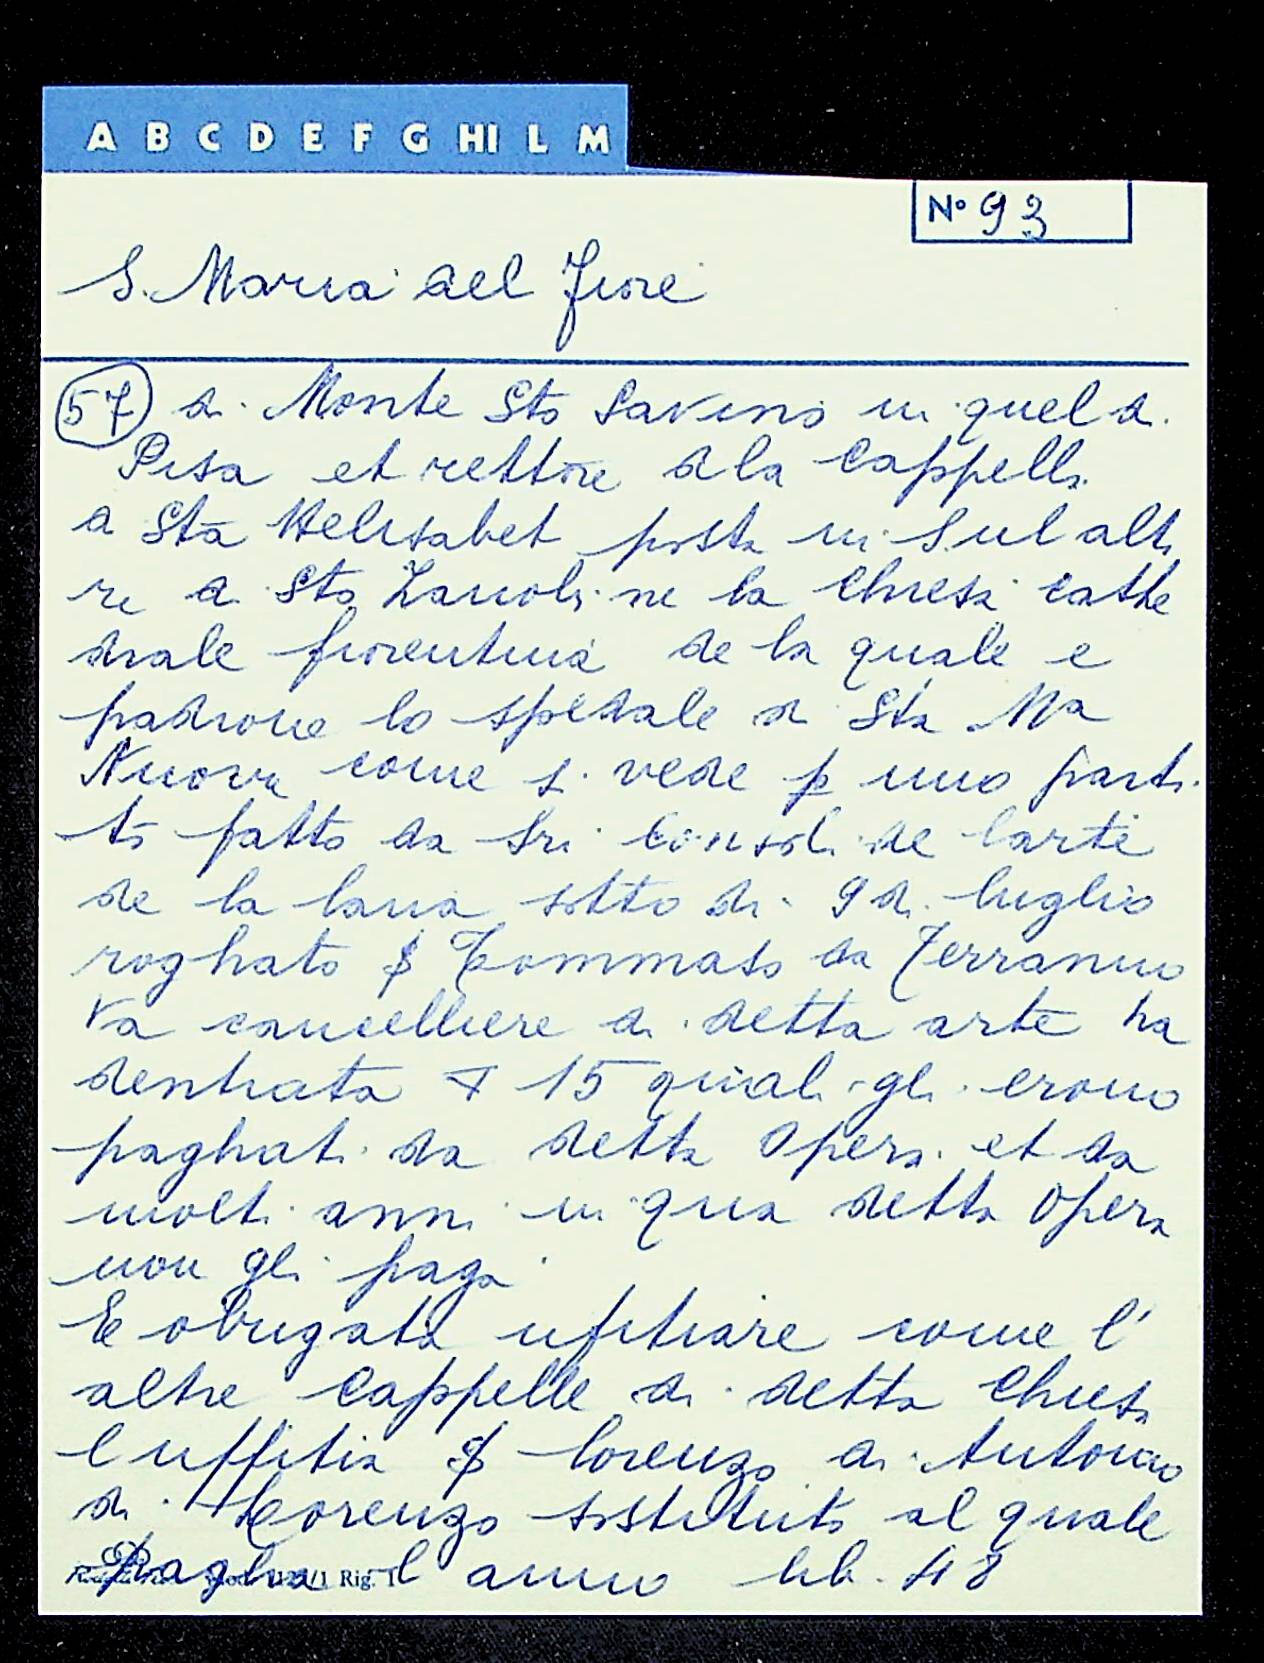 A B C D E F G HI L M
N° 93
S. Maria del Fiore
57 di Monte Sto Savino in quel di
Pisa et rettore de la Cappella
di Sta Helisabet posta in sul alta
re di Sto Zanobi ne la Chiesa cathe
drale fiorentina de la quale e
padrone lo spedale di Sta Ma
Nuova come si vede p uno parti
to fatto da Sri Consoli de larte
de la lana sotto di 9 di luglio
roghato Tommaso da Terranuo
va cancelliere di detta arte ha
dentrata 15 quali gli erono
paghati da detta Opera et da
molti anni in qua detta Opera
non gli paga
E obrigata ufitiare come l'
altre Cappelle di detta Chiesa
l uffitia Lorenzo di Antonio
di Lorenzo sostituto al quale
pagha l anno lib. 48
Rig. 1